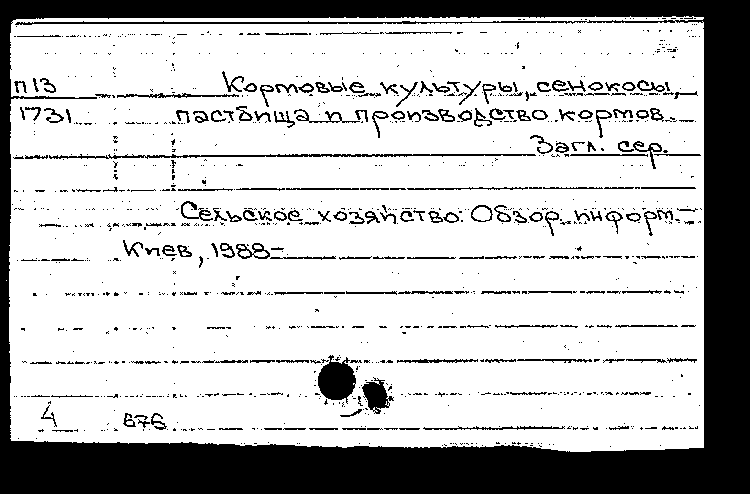 П13 Кормовые культуры, сенокосы,
1731 пастбища и производство кормов.
Загл. сер.
Сельское хозяйство: Обзор. информ.—
Киев, 1988—
4 676